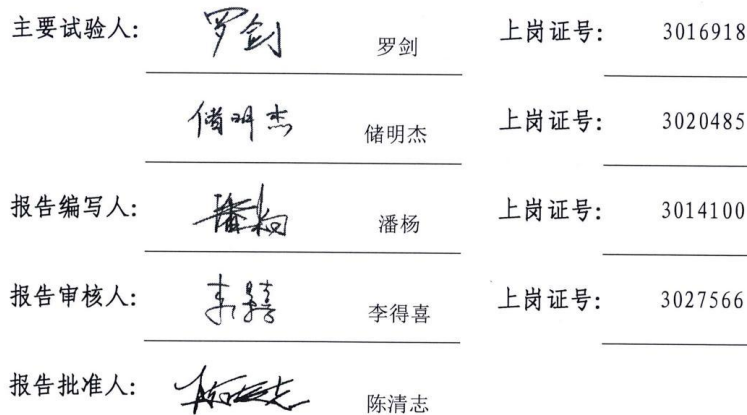 主要试验人: 罗剑 罗剑 上岗证号: 3016918
储明杰 储明杰 上岗证号: 3020485
报告编写人: 潘杨 潘杨 上岗证号: 3014100
报告审核人: 李得喜 上岗证号: 3027566
报告批准人: 陈清志